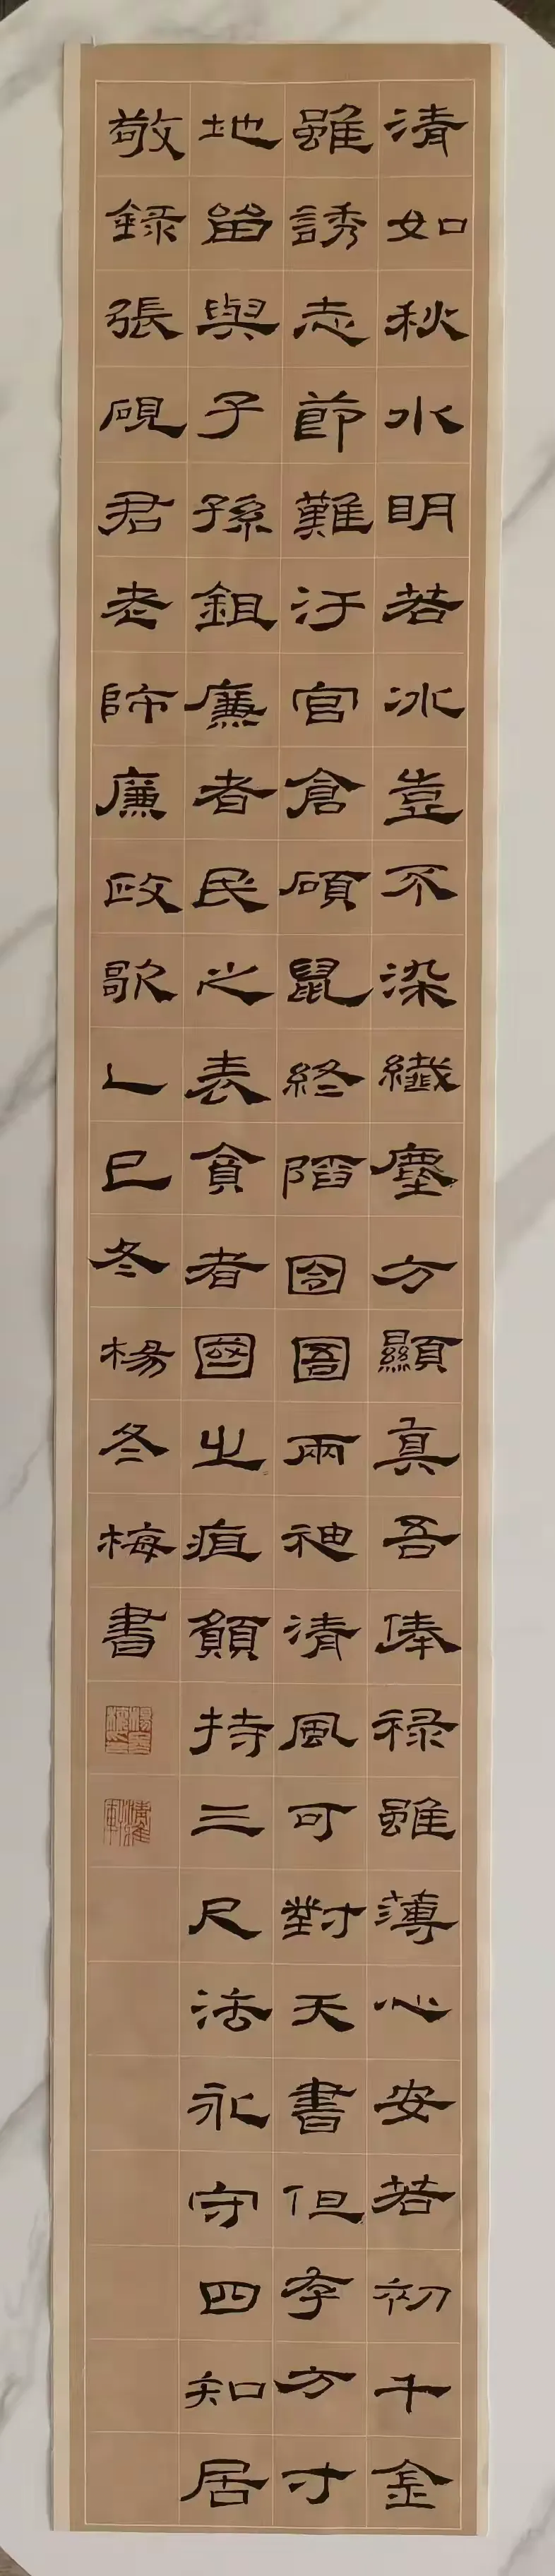 清如秋水明若冰豈不染纖塵方顯真吾俸禄雖薄心安若初千金
雖誘志節難汙官倉碩鼠終陷囹圄兩袖清風可對天書但存方寸
地留與子孫鉏廉者民之表貪者國之疽願持三尺法永守四知居
敬録張硯君老師廉政歌乙巳冬楊冬梅書